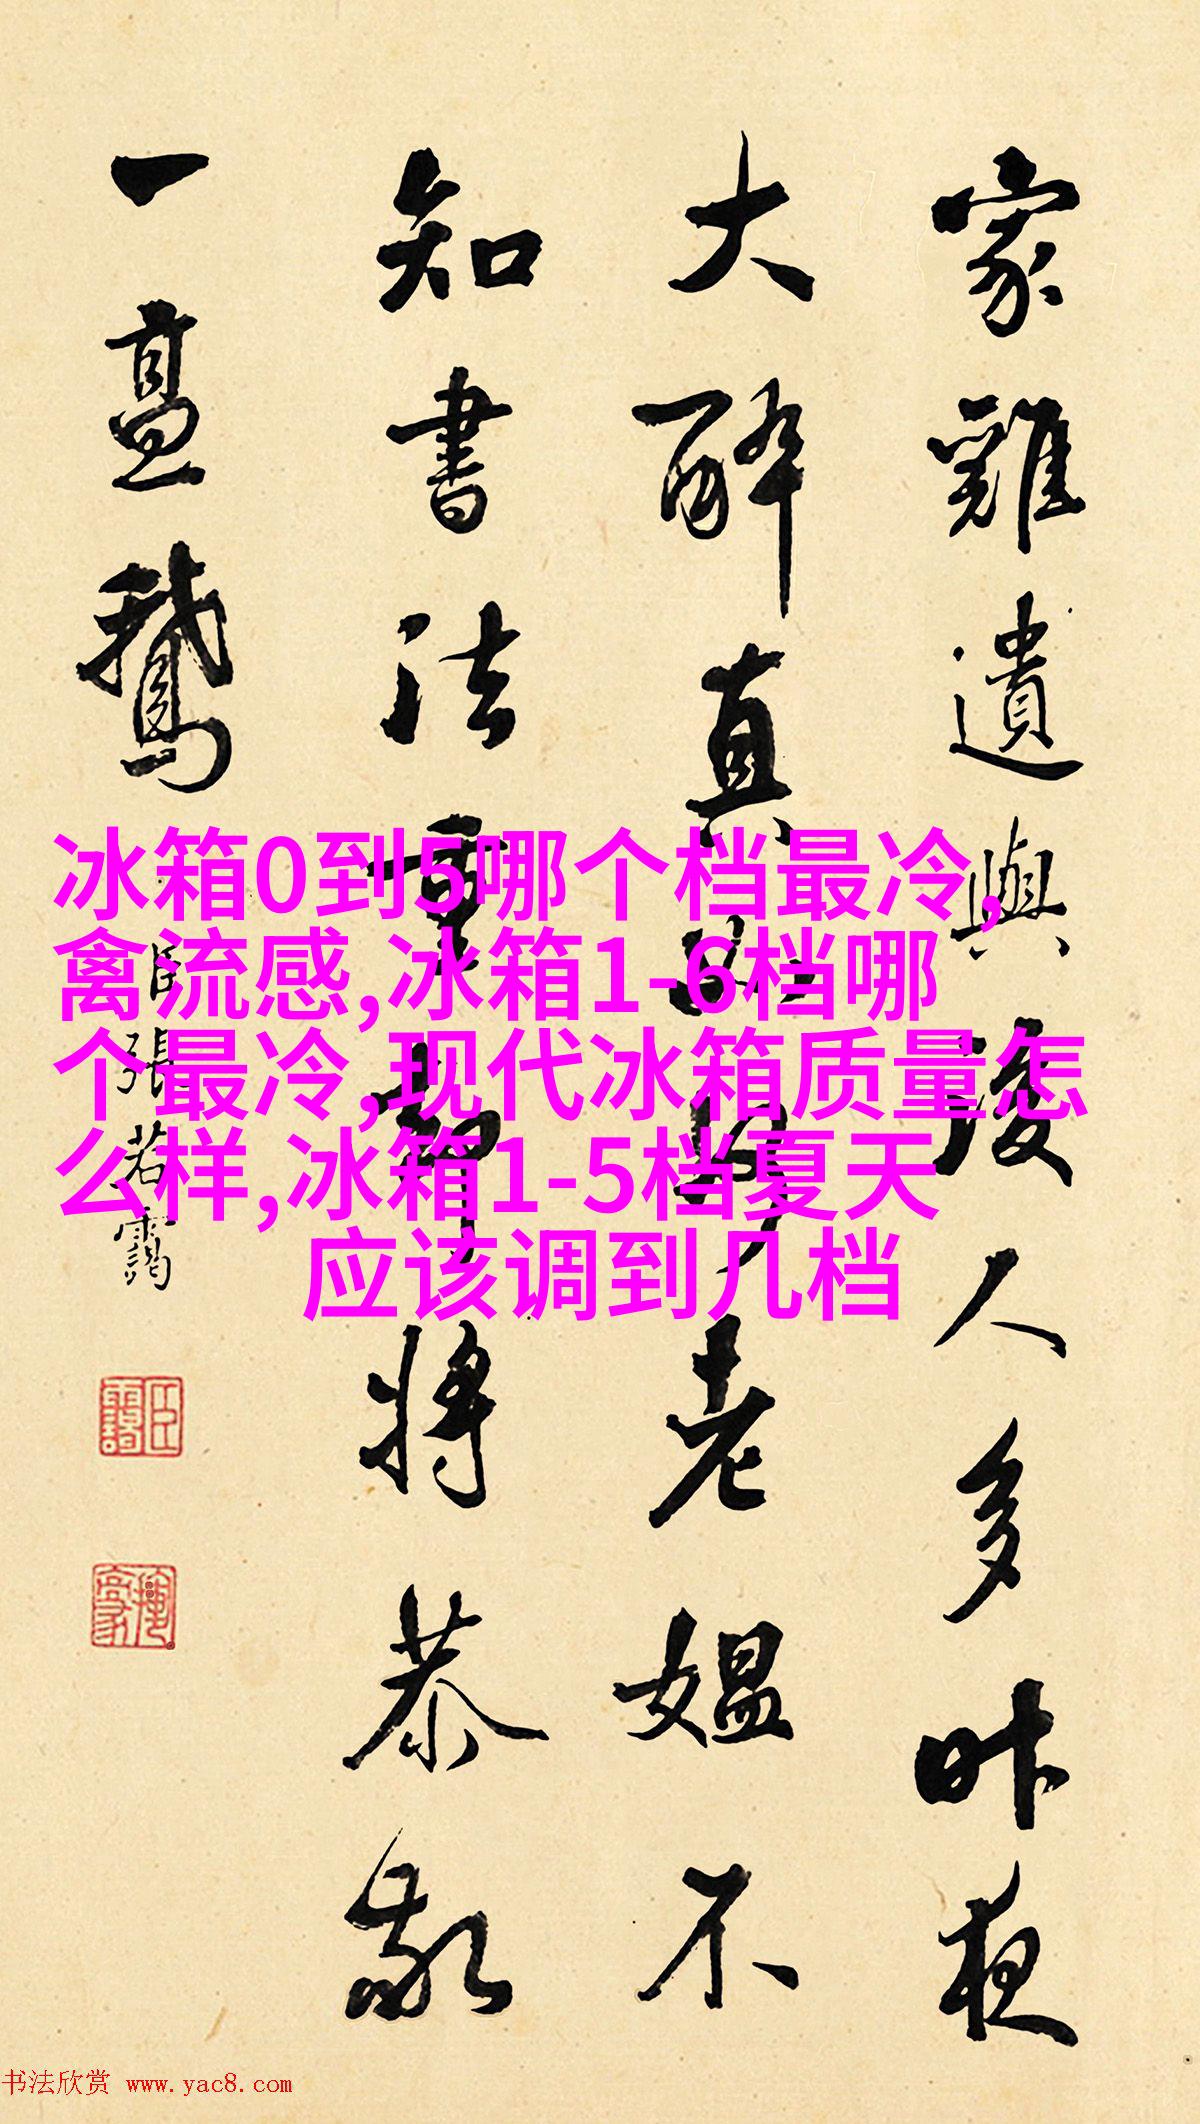 家雞遺與人多昨夜
大醉真老媪不
知書法將恭敬
一鵝
臣張若靄
冰箱0到5哪个档最冷,
禽流感,冰箱1-6档哪
个最冷,现代冰箱质量怎
么样,冰箱1-5档夏天
应该调到几档
书法欣赏 www.yac8.com